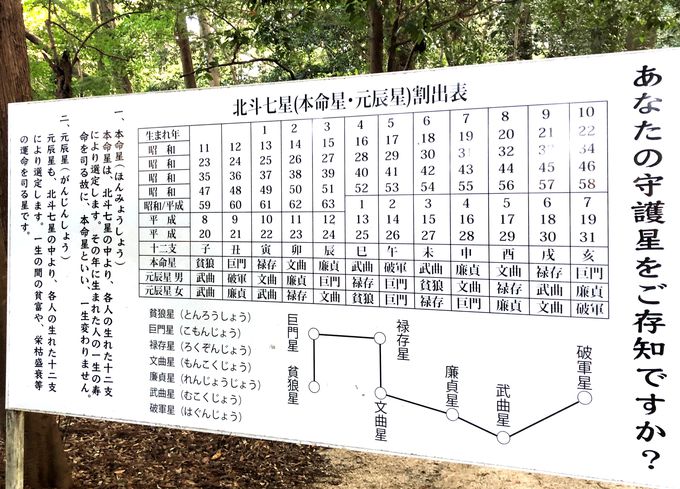 あなたの守護星をご存知ですか?
北斗七星(本命星・元辰星)割出表
生まれ年 1 2 3 4 5 6 7 8 9 10
昭和 11 12 13 14 15 16 17 18 19 20 21 22
昭和 23 24 25 26 27 28 29 30 31 32 33 34
昭和 35 36 37 38 39 40 41 42 43 44 45 46
昭和 47 48 49 50 51 52 53 54 55 56 57 58
昭和/平成 59 60 61 62 63 1 2 3 4 5 6 7
平成 8 9 10 11 12 13 14 15 16 17 18 19
平成 20 21 22 23 24 25 26 27 28 29 30 31
十二支 子 丑 寅 卯 辰 巳 午 未 申 酉 戌 亥
本命星 貪狼 巨門 禄存 文曲 廉貞 武曲 破軍 武曲 廉貞 文曲 禄存 巨門
元辰星 男 武曲 破軍
元辰星 女 武曲 廉貞
一、本命星(ほんみょうしょう)
本命星は、北斗七星の中より、各人の生れた十二支
により選定します。その年に生まれた人の一生の寿
命を司る故に、本命星といい、一生変わりません。
二、元辰星(がんじんしょう)
元辰星も、北斗七星の中より、各人の生れた十二支
により選定します。一生の間の貧富や、栄枯盛衰等
の運命を司る星です。
貪狼星(とんろうしょう)
巨門星(こもんじょう)
禄存星(ろくぞんじょう)
文曲星(もんこくじょう)
廉貞星(れんじょうじょう)
武曲星(むこくじょう)
破軍星(はぐんじょう)
巨門星
貪狼星
禄存星
文曲星
廉貞星
武曲星
破軍星